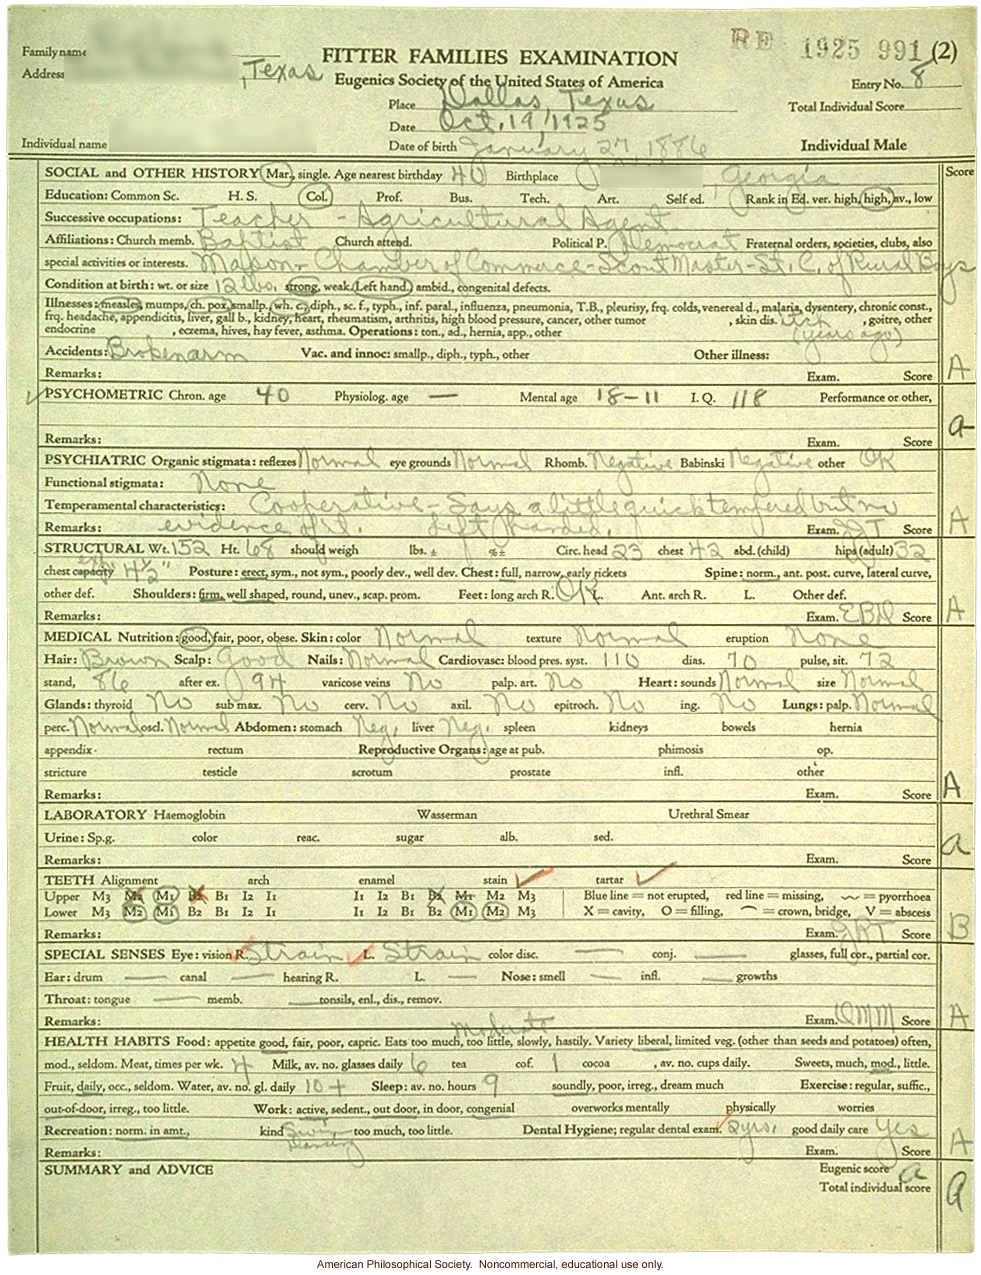 RE 1925 991 (2)
Family name
FITTER FAMILIES EXAMINATION
Address , Texas
Eugenics Society of the United States of America
Entry No. 8
Place Dallas, Texas
Total Individual Score
Date Oct. 19, 1925
Individual name
Date of birth January 27, 1886
Individual Male
SOCIAL and OTHER HISTORY Mar., single. Age nearest birthday 40 Birthplace , Georgia Score
Education: Common Sc. H. S. Col. Prof. Bus. Tech. Art. Self ed. Rank in Ed. ver. high, high, av., low
Successive occupations: Teacher - Agricultural Agent
Affiliations: Church memb. Baptist Church attend. Political P. Democrat Fraternal orders, societies, clubs, also
special activities or interests. Mason - Chamber of Commerce - Scout Master - St. C. of Rural Boys
Condition at birth: wt. or size 12 lbs. strong, weak. (Left hand.) ambid., congenital defects.
Illnesses: measles, mumps, ch. pox, smallp., wh. c., diph., sc. f., typh., inf. paral., influenza, pneumonia, T.B., pleurisy, frq. colds, venereal d., malaria, dysentery, chronic const.,
frq. headache, appendicitis, liver, gall b., kidney, heart, rheumatism, arthritis, high blood pressure, cancer, other tumor , skin dis. itch , goitre, other
endocrine , eczema, hives, hay fever, asthma. Operations: ton., ad., hernia, app., other (years ago)
Accidents: Broken arm Vac. and innoc: smallp., diph., typh., other Other illness:
Remarks: Exam. Score A
PSYCHOMETRIC Chron. age 40 Physiolog. age — Mental age 18-11 I. Q. 118 Performance or other,
Remarks: Exam. Score a-
PSYCHIATRIC Organic stigmata: reflexes Normal eye grounds Normal Rhomb. Negative Babinski Negative other OK
Functional stigmata: None
Temperamental characteristics: Cooperative - Says a little quick tempered but no
Remarks: evidence of it. Left handed. Exam. Score A
STRUCTURAL Wt. 152 Ht. 68 should weigh lbs. ± %± Circ. head 23 chest 42 abd. (child) hips (adult) 32
chest exp. capacity "4½" Posture: erect, sym., not sym., poorly dev., well dev. Chest: full, narrow, early rickets Spine: norm., ant. post. curve, lateral curve,
other def. Shoulders: firm, well shaped, round, unev., scap. prom. Feet: long arch R. OK L. Ant. arch R. L. Other def.
Remarks: Exam. EBH Score A
MEDICAL Nutrition: good, fair, poor, obese. Skin: color Normal texture Normal eruption None
Hair: Brown Scalp: Good Nails: Normal Cardiovasc: blood pres. syst. 110 dias. 70 pulse, sit. 72
stand, 86 after ex. 94 varicose veins No palp. art. No Heart: sounds Normal size Normal
Glands: thyroid No sub max. No cerv. No axil. No epitroch. No ing. No Lungs: palp. Normal
perc. Normal oscl. Normal Abdomen: stomach Neg. liver Neg. spleen kidneys bowels hernia
appendix- rectum Reproductive Organs: age at pub. phimosis op.
stricture testicle scrotum prostate infl. other
Remarks: Exam. Score A
LABORATORY Haemoglobin Wasserman Urethral Smear
Urine: Sp.g. color reac. sugar alb. sed.
Remarks: Exam. Score a
TEETH Alignment arch enamel stain ✓ tartar ✓
Upper M3 M2 M1 B2 B1 I2 I1 I1 I2 B1 B2 M1 M2 M3 Blue line = not erupted, red line = missing, = pyorrhoea
Lower M3 M2 M1 B2 B1 I2 I1 I1 I2 B1 B2 M1 M2 M3 X = cavity, O = filling, = crown, bridge, V = abscess
Remarks: Exam. Score B
SPECIAL SENSES Eye: vision R. Strain L. Strain color disc. — conj. — glasses, full cor., partial cor.
Ear: drum — canal — hearing R. — L. — Nose: smell — infl. — growths
Throat: tongue — memb. — tonsils, enl., dis., remov.
Remarks: Exam. OMM Score A
moderate
HEALTH HABITS Food: appetite good, fair, poor, capric. Eats too much, too little, slowly, hastily. Variety liberal, limited veg. (other than seeds and potatoes) often,
mod., seldom. Meat, times per wk. 4 Milk, av. no. glasses daily 6 tea cof. 1 cocoa , av. no. cups daily. Sweets, much, mod., little.
Fruit, daily, occ., seldom. Water, av. no. gl. daily 10+ Sleep: av. no. hours 9 soundly, poor, irreg., dream much Exercise: regular, suffic.,
out-of-door, irreg., too little. Work: active, sedent., out door, in door, congenial overworks mentally physically worries
Recreation: norm. in amt., kind too much, too little. Dental Hygiene; regular dental exam. 2 yrs. good daily care Yes
Remarks: Exam. Score A
SUMMARY and ADVICE Eugenic score a
Total individual score a
American Philosophical Society. Noncommercial, educational use only.